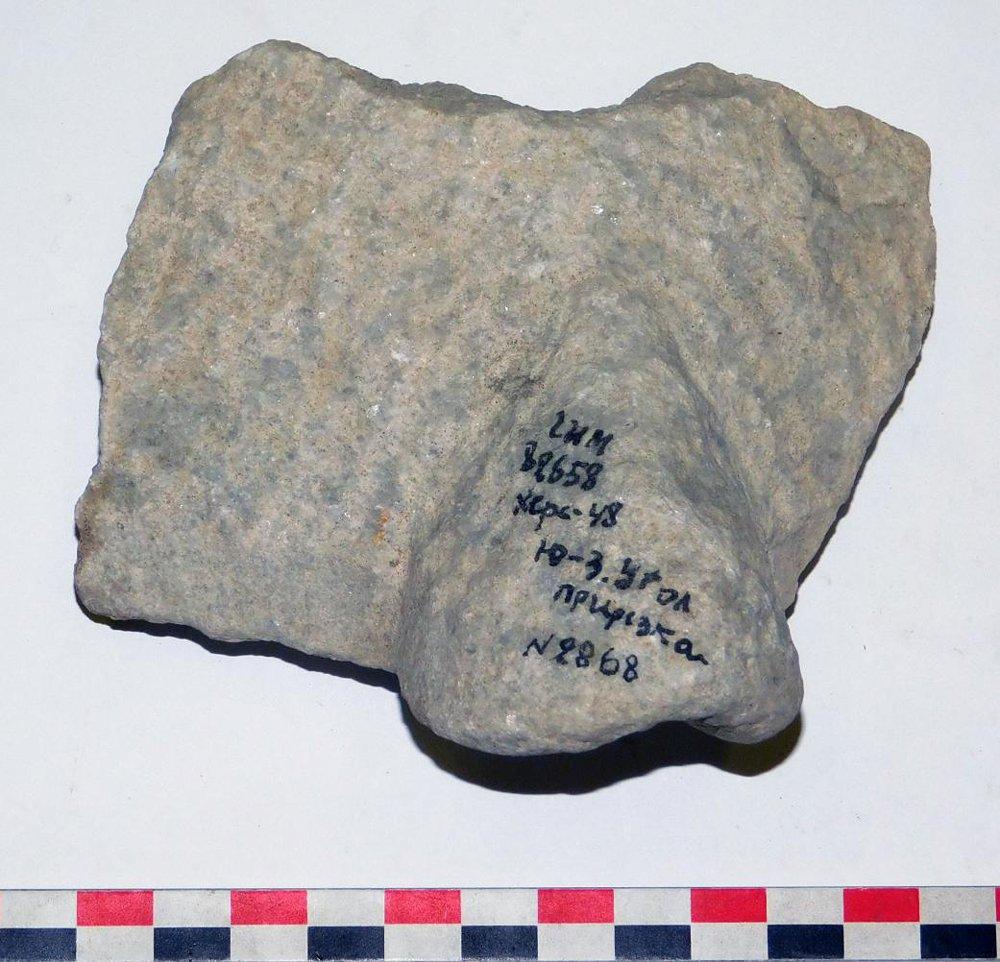 ГИМ
82658
Херс-48
Ю-З. Угол
прирезка
N2868